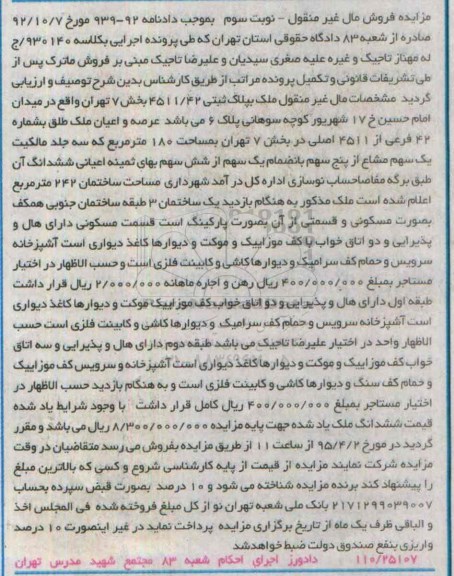 مزایده فروش مال غیر منقول - نوبت سوم بموجب دادنامه ۹۲-۹۳۹ مورخ ۹۲/۱۰/۷
صادره از شعبه ۸۳ دادگاه حقوقی استان تهران که طی پرونده اجرایی بکلاسه ۹۳۰۱۴۰/ج
له مهناز تاجیک و غیره علیه صغری سیدیان و علیرضا تاجیک مبنی بر فروش ماترک پس از
طی تشریفات قانونی و تکمیل پرونده مراتب از طریق کارشناس بدین شرح توصیف و ارزیابی
گردید مشخصات مال غیر منقول ملک بپلاک ثبتی ۴۵۱۱/۴۲ بخش ۷ تهران واقع در میدان
امام حسین خ ۱۷ شهریور کوچه سوهانی پلاک ۶ می باشد عرصه و اعیان ملک طلق بشماره
۴۲ فرعی از ۴۵۱۱ اصلی در بخش ۷ تهران بمساحت ۱۸۰ مترمربع که سه جلد مالکیت
یک سهم مشاع از پنج سهم بانضمام یک سهم از شش سهم بهای ثمینه اعیانی ششدانگ آن
طبق برگه مفاصاحساب نوسازی اداره کل در آمد شهرداری مساحت ساختمان ۲۴۲ مترمربع
اعلام شده است ملک مذکور به هنگام بازدید یک ساختمان ۳ طبقه ساختمان جنوبی همکف
بصورت مسکونی و قسمتی از آن بصورت پارکینگ است قسمت مسکونی دارای هال و
پذیرایی و دو اتاق خواب با کف موزاییک و موکت و دیوارها کاغذ دیواری است آشپزخانه
سرویس و حمام کف سرامیک و دیوارها کاشی و کابینت فلزی است و حسب الاظهار در اختیار
مستاجر بمبلغ ۴۰۰/۰۰۰/۰۰۰ ریال رهن و اجاره ماهانه ۲/۰۰۰/۰۰۰ ریال قرار داشت
طبقه اول دارای هال و پذیرایی و دو اتاق خواب کف موزاییک موکت و دیوارها کاغذ دیواری
است آشپزخانه سرویس و حمام کف سرامیک و دیوارها کاشی و کابینت فلزی است حسب
الاظهار واحد در اختیار علیرضا تاجیک می باشد طبقه دوم دارای هال و پذیرایی و سه اتاق
خواب کف موزاییک و موکت و دیوارها کاغذ دیواری است آشپزخانه و سرویس کف موزاییک
و حمام کف سنگ و دیوارها کاشی و کابینت فلزی است و به هنگام بازدید حسب الاظهار در
اختیار مستاجر بمبلغ ۴۰۰/۰۰۰/۰۰۰ ریال کامل قرار داشت با وجود شرایط یاد شده
قیمت ششدانگ ملک یاد شده جهت پایه مزایده ۸/۳۰۰/۰۰۰/۰۰۰ ریال می باشد و مقرر
گردید در مورخ ۹۵/۴/۲ از ساعت ۱۱ از طریق مزایده بفروش می رسد متقاضیان در وقت
مزایده شرکت نمایند مزایده از قیمت از پایه کارشناسی شروع و کسی که بالاترین مبلغ
را پیشنهاد کند برنده مزایده شناخته می شود و ۱۰ درصد بصورت قبض سپرده بحساب
۲۱۷۱۲۹۹۰۳۹۰۰۷ بانک ملی شعبه تهران نو از کل مبلغ فروخته شده فی المجلس اخذ
و الباقی ظرف یک ماه از تاریخ برگزاری مزایده پرداخت نماید در غیر اینصورت ۱۰ درصد
واریزی بنفع صندوق دولت ضبط خواهد شد
۱۱۰/۲۵۱۰۷ دادورز اجرای احکام شعبه ۸۳ مجتمع شهید مدرس تهران